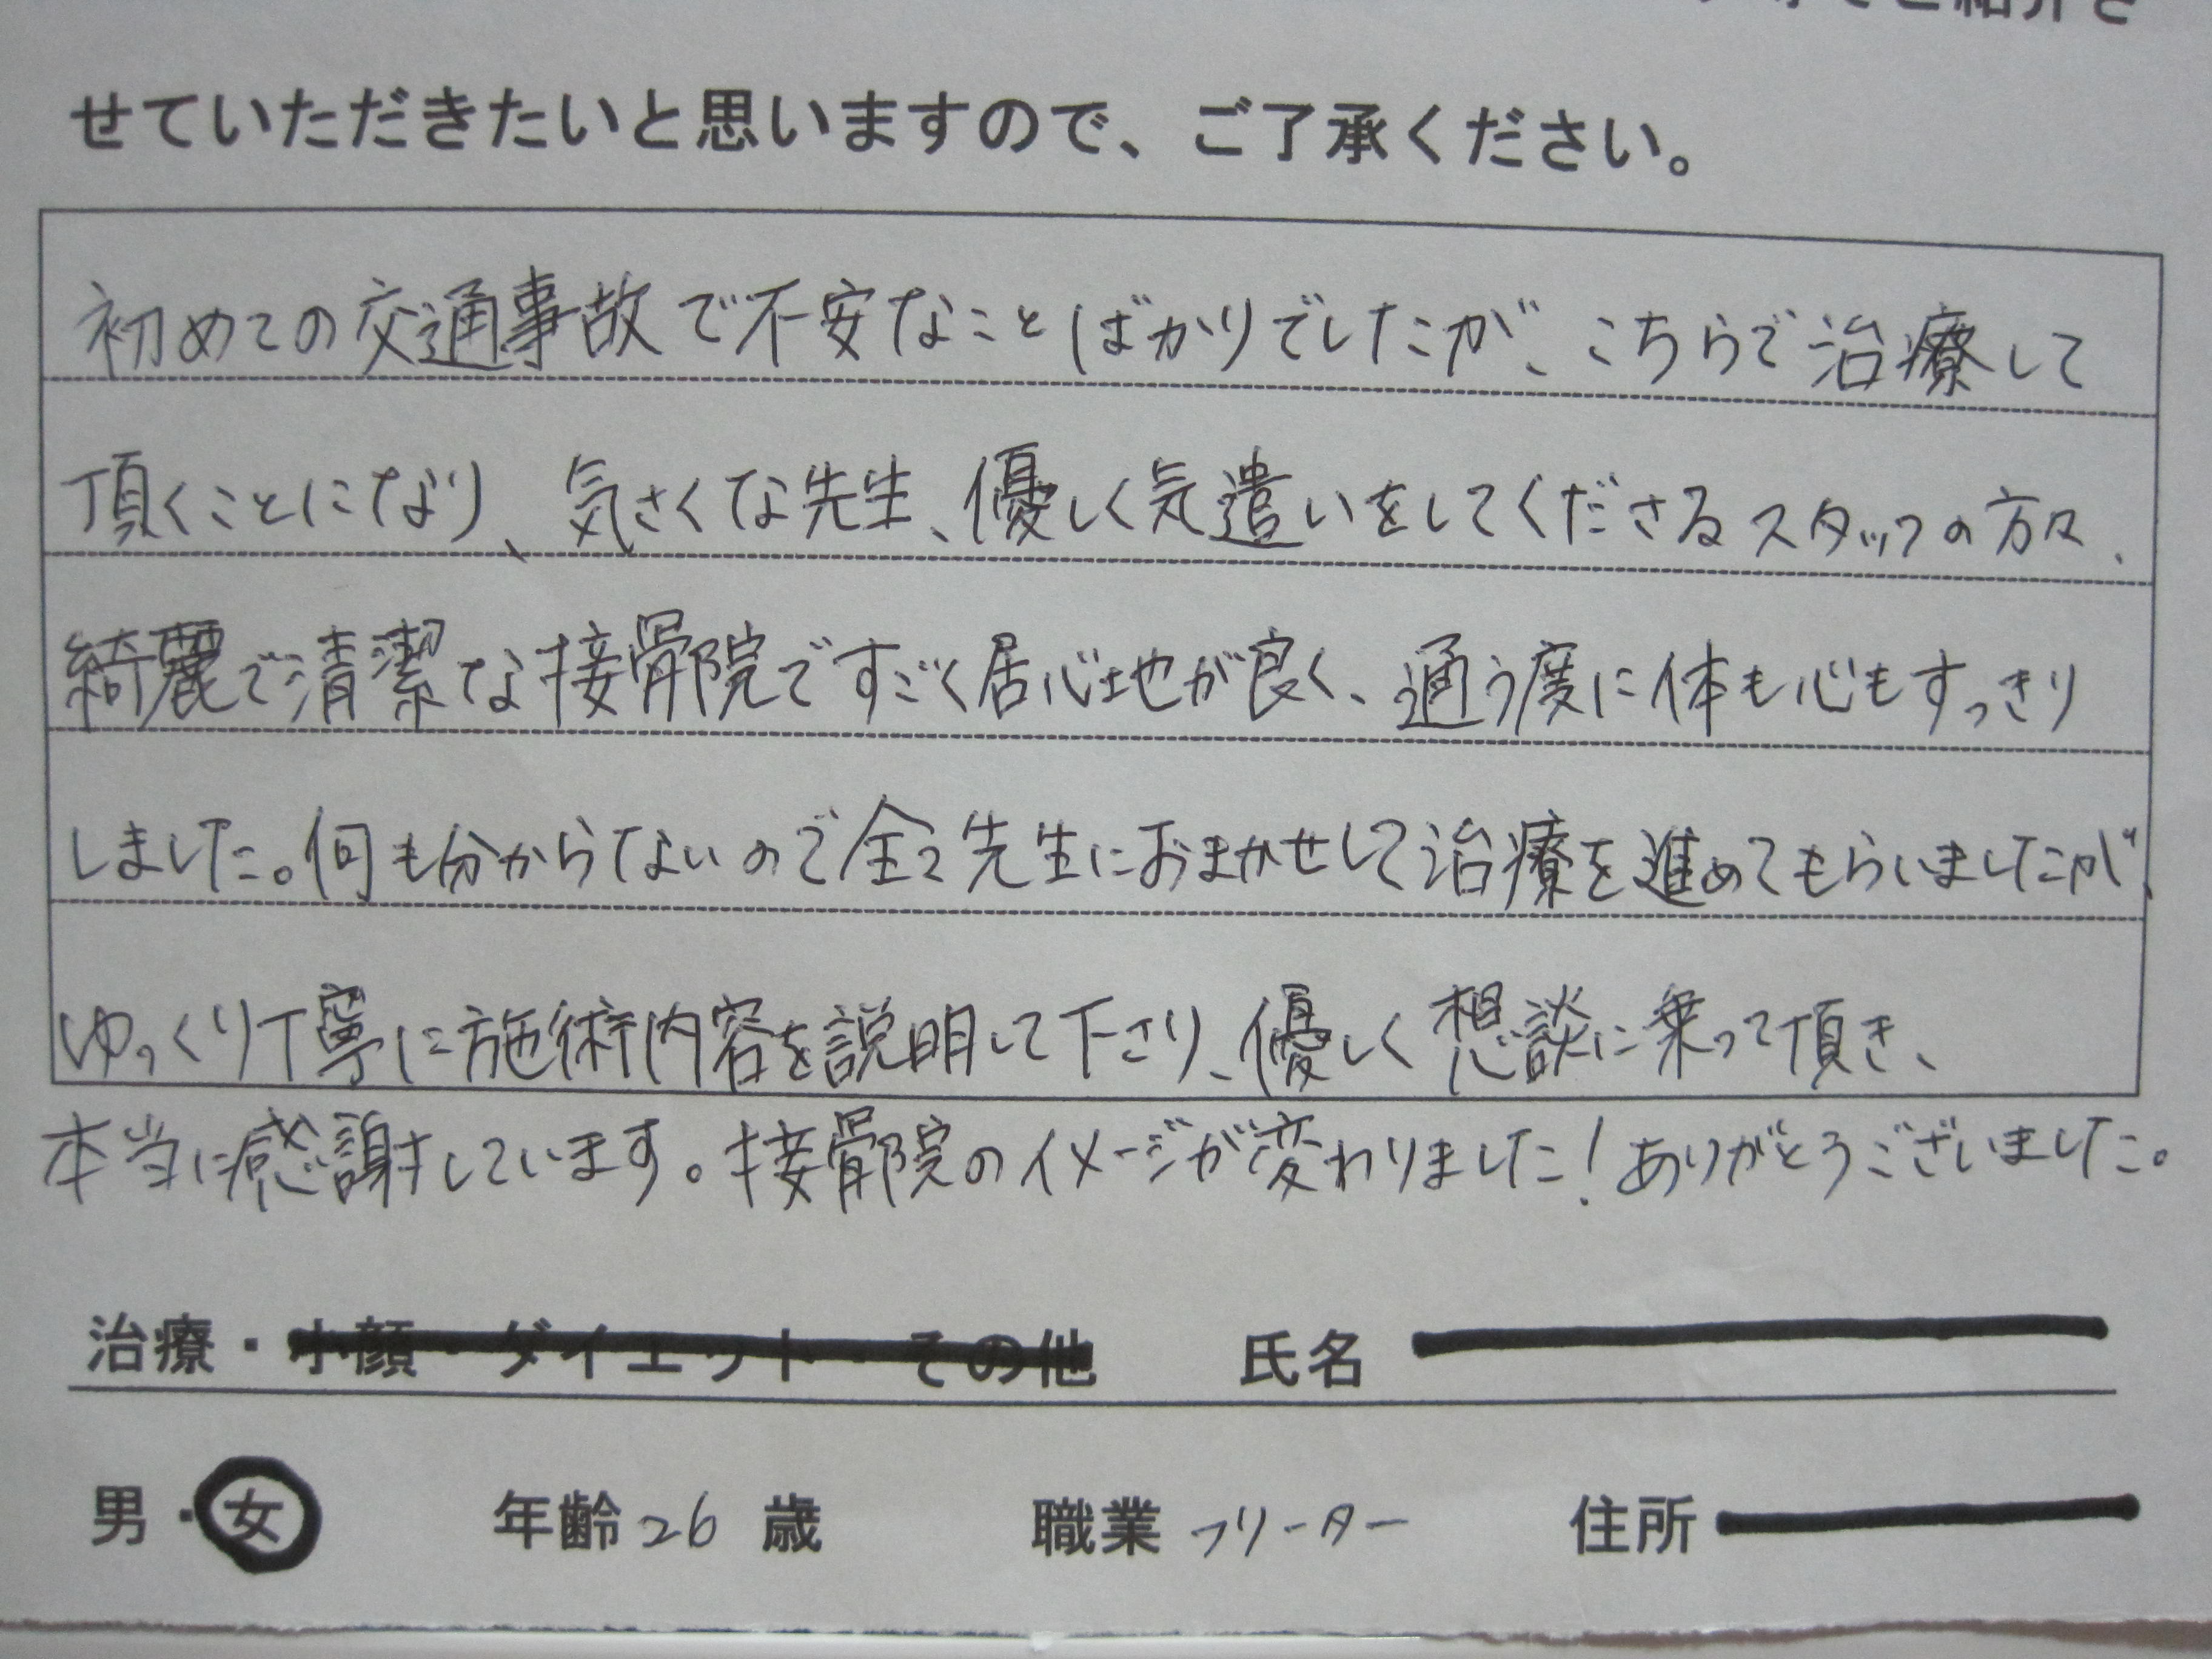 ご紹介さ
せていただきたいと思いますので、ご了承ください。
初めての交通事故で不安なことばかりでしたが、こちらで治療して
頂くことになり、気さくな先生、優しく気遣いをしてくださるスタッフの方々、
綺麗で清潔な接骨院ですごく居心地が良く、通う度に体も心もすっきり
しました。何も分からないので全て先生におまかせして治療を進めてもらいましたが、
ゆっくり丁寧に施術内容を説明して下さり、優しく想談に乗って頂き、
本当に感謝しています。接骨院のイメージが変わりました!ありがとうございました。
治療・小顔・ダイエット・その他 氏名
男・女 年齢 26 歳 職業 フリーター 住所